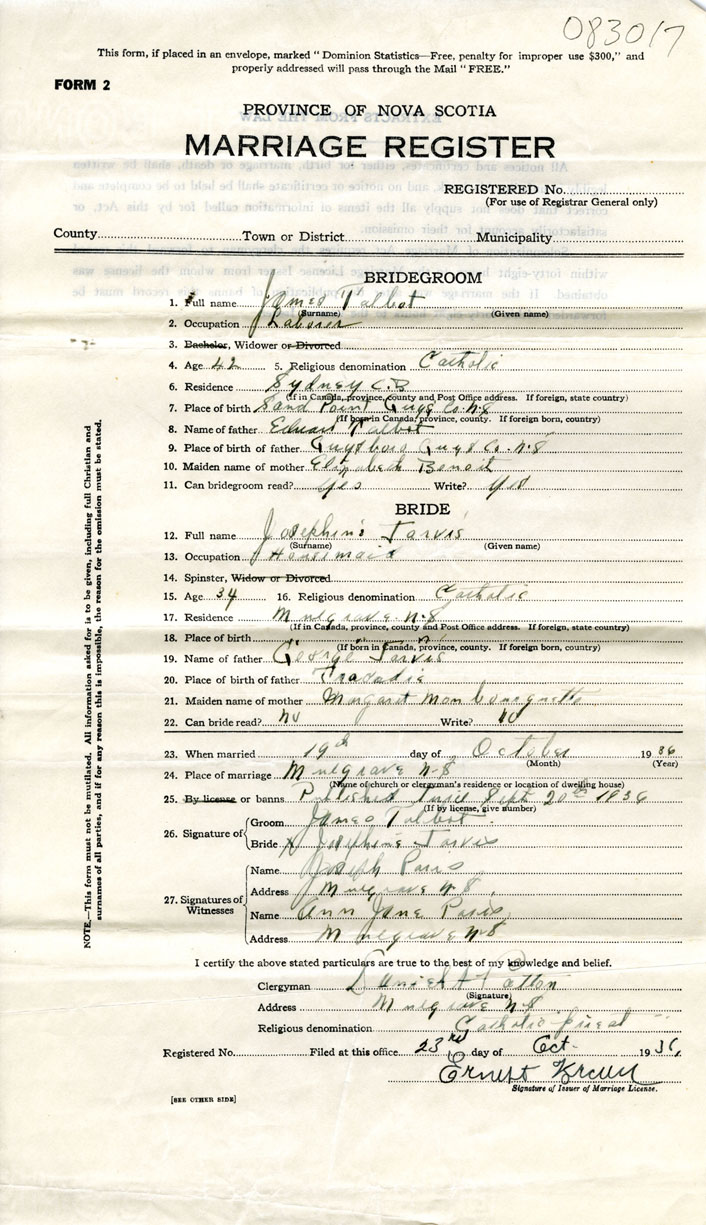 083017
This form, if placed in an envelope, marked "Dominion Statistics—Free, penalty for improper use $300," and
properly addressed will pass through the Mail "FREE."
FORM 2
PROVINCE OF NOVA SCOTIA
MARRIAGE REGISTER
REGISTERED No.
(For use of Registrar General only)
County Town or District Municipality
BRIDEGROOM
1. Full name James Talbot
(Surname) (Given name)
2. Occupation Laborer
3. Bachelor, Widower or Divorced
4. Age 42 5. Religious denomination Catholic
6. Residence Sydney C.B
(If in Canada, province, county and Post Office address. If foreign, state country)
7. Place of birth Sand Point Guys Co. N.S
(If born in Canada, province, county. If foreign born, country)
8. Name of father Edward Talbot
9. Place of birth of father Guysboro Guys Co. N.S
10. Maiden name of mother Elizabeth Benoit
11. Can bridegroom read? Yes Write? Yes
BRIDE
12. Full name Josephine Jarvis
(Surname) (Given name)
13. Occupation Housemaid
14. Spinster, Widow or Divorced
15. Age 34 16. Religious denomination Catholic
17. Residence Mulgrave N.S
(If in Canada, province, county and Post Office address. If foreign, state country)
18. Place of birth
(If born in Canada, province, county. If foreign born, country)
19. Name of father George Jarvis
20. Place of birth of father Tracadie
21. Maiden name of mother Margaret Mombourquette
22. Can bride read? no Write? no
23. When married 19th day of October 1936
(Month) (Year)
24. Place of marriage Mulgrave N.S
(Name of church or clergyman's residence or location of dwelling house)
25. By license or banns Published Sept 20th 1936
(If by license, give number)
26. Signature of Groom James Talbot
Bride X Josephine Jarvis
27. Signatures of Witnesses
Name Joseph Paris
Address Mulgrave N.S
Name Ann Jane Paris
Address Mulgrave N.S
I certify the above stated particulars are true to the best of my knowledge and belief.
Clergyman
(Signature)
Address Mulgrave N.S
Religious denomination Catholic priest
Registered No. Filed at this office 23rd day of Oct. 1936.
Ernest
Signature of Issuer of Marriage License.
[SEE OTHER SIDE]
NOTE.—This form must not be mutilated. All information asked for is to be given, including full Christian and
surnames of all parties, and if for any reason this is impossible, the reason for the omission must be stated.